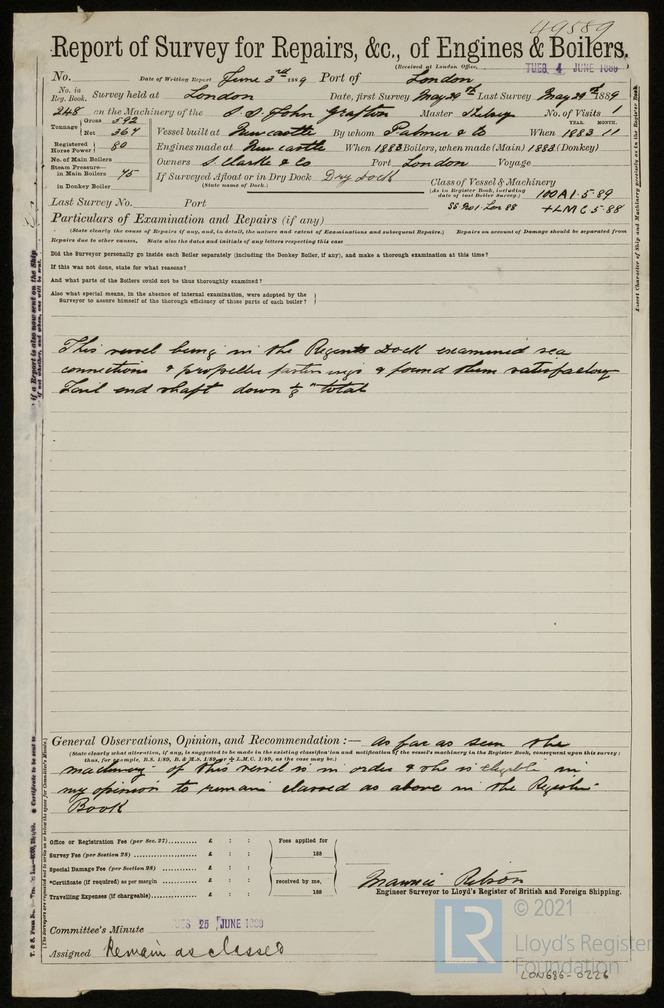 49589
Report of Survey for Repairs, &c., of Engines & Boilers.
(Received at London Office, TUES 4 JUNE 1889
No. Date of Writing Report June 3rd 1889 Port of London
No. in Reg. Book. Survey held at London Date, first Survey May 29th Last Survey May 29th 1889
248 on the Machinery of the S.S. John Grafton Master No. of Visits 1
Tonnage Gross 592 Net 364 Vessel built at Newcastle By whom Palmer & Co When 1883 YEAR. 11 MONTH.
Registered Horse Power 80 Engines made at Newcastle When 1883 Boilers, when made (Main) 1883 (Donkey)
No. of Main Boilers Owners S. Clarke & Co Port London Voyage
Steam Pressure— in Main Boilers 75 If Surveyed Afloat or in Dry Dock Dry Dock
(State name of Dock.)
in Donkey Boiler
Class of Vessel & Machinery
(As in Register Book, including date of last Boiler Survey.) 100A1·5·89
SS No1·Lon 88 +LMC 5·88
Last Survey No. Port
Particulars of Examination and Repairs (if any)
(State clearly the cause of Repairs if any, and, in detail, the nature and extent of Examinations and subsequent Repairs.) Repairs on account of Damage should be separated from
Repairs due to other causes, State also the dates and initials of any letters respecting this case
Did the Surveyor personally go inside each Boiler separately (including the Donkey Boiler, if any), and make a thorough examination at this time?
If this was not done, state for what reasons?
And what parts of the Boilers could not be thus thoroughly examined?
Also what special means, in the absence of internal examination, were adopted by the
Surveyor to assure himself of the thorough efficiency of those parts of each boiler?
This vessel being in the Regents Dock examined sea
connections & propeller fastenings & found them satisfactory
Tail end shaft down 1/8" total
General Observations, Opinion, and Recommendation :— as far as seen the
(State clearly what alteration, if any, is suggested to be made in the existing classification and notification of the vessel's machinery in the Register Book, consequent upon this survey;
thus, for example, B.S. 1/89, B. & M.S. 1/89, or L.M.C. 1/89, as the case may be.)
machinery of this vessel is in order & she is eligible in
my opinion to remain classed as above in the Register
Book
Office or Registration Fee (per Sec. 27).......... £ : :
Survey Fee (per Section 28) .......... £ : :
Special Damage Fee (per Section 28) .......... £ : :
Certificate (if required) as per margin .......... £ : :
Travelling Expenses (if chargeable).......... £ : :
Fees applied for
188
received by me,
188
Maurice
Engineer Surveyor to Lloyd's Register of British and Foreign Shipping.
Committee's Minute TUES 25 JUNE 1889
Assigned Remain as classed
Insert Character of Ship and Machinery precisely as in the Register Book.
If a Report is also now sent on the Ship
if not whether, and when, one will be sent.
Certificate to be sent to
© 2021
LR
Lloyd's Register
Foundation
LON686-0226